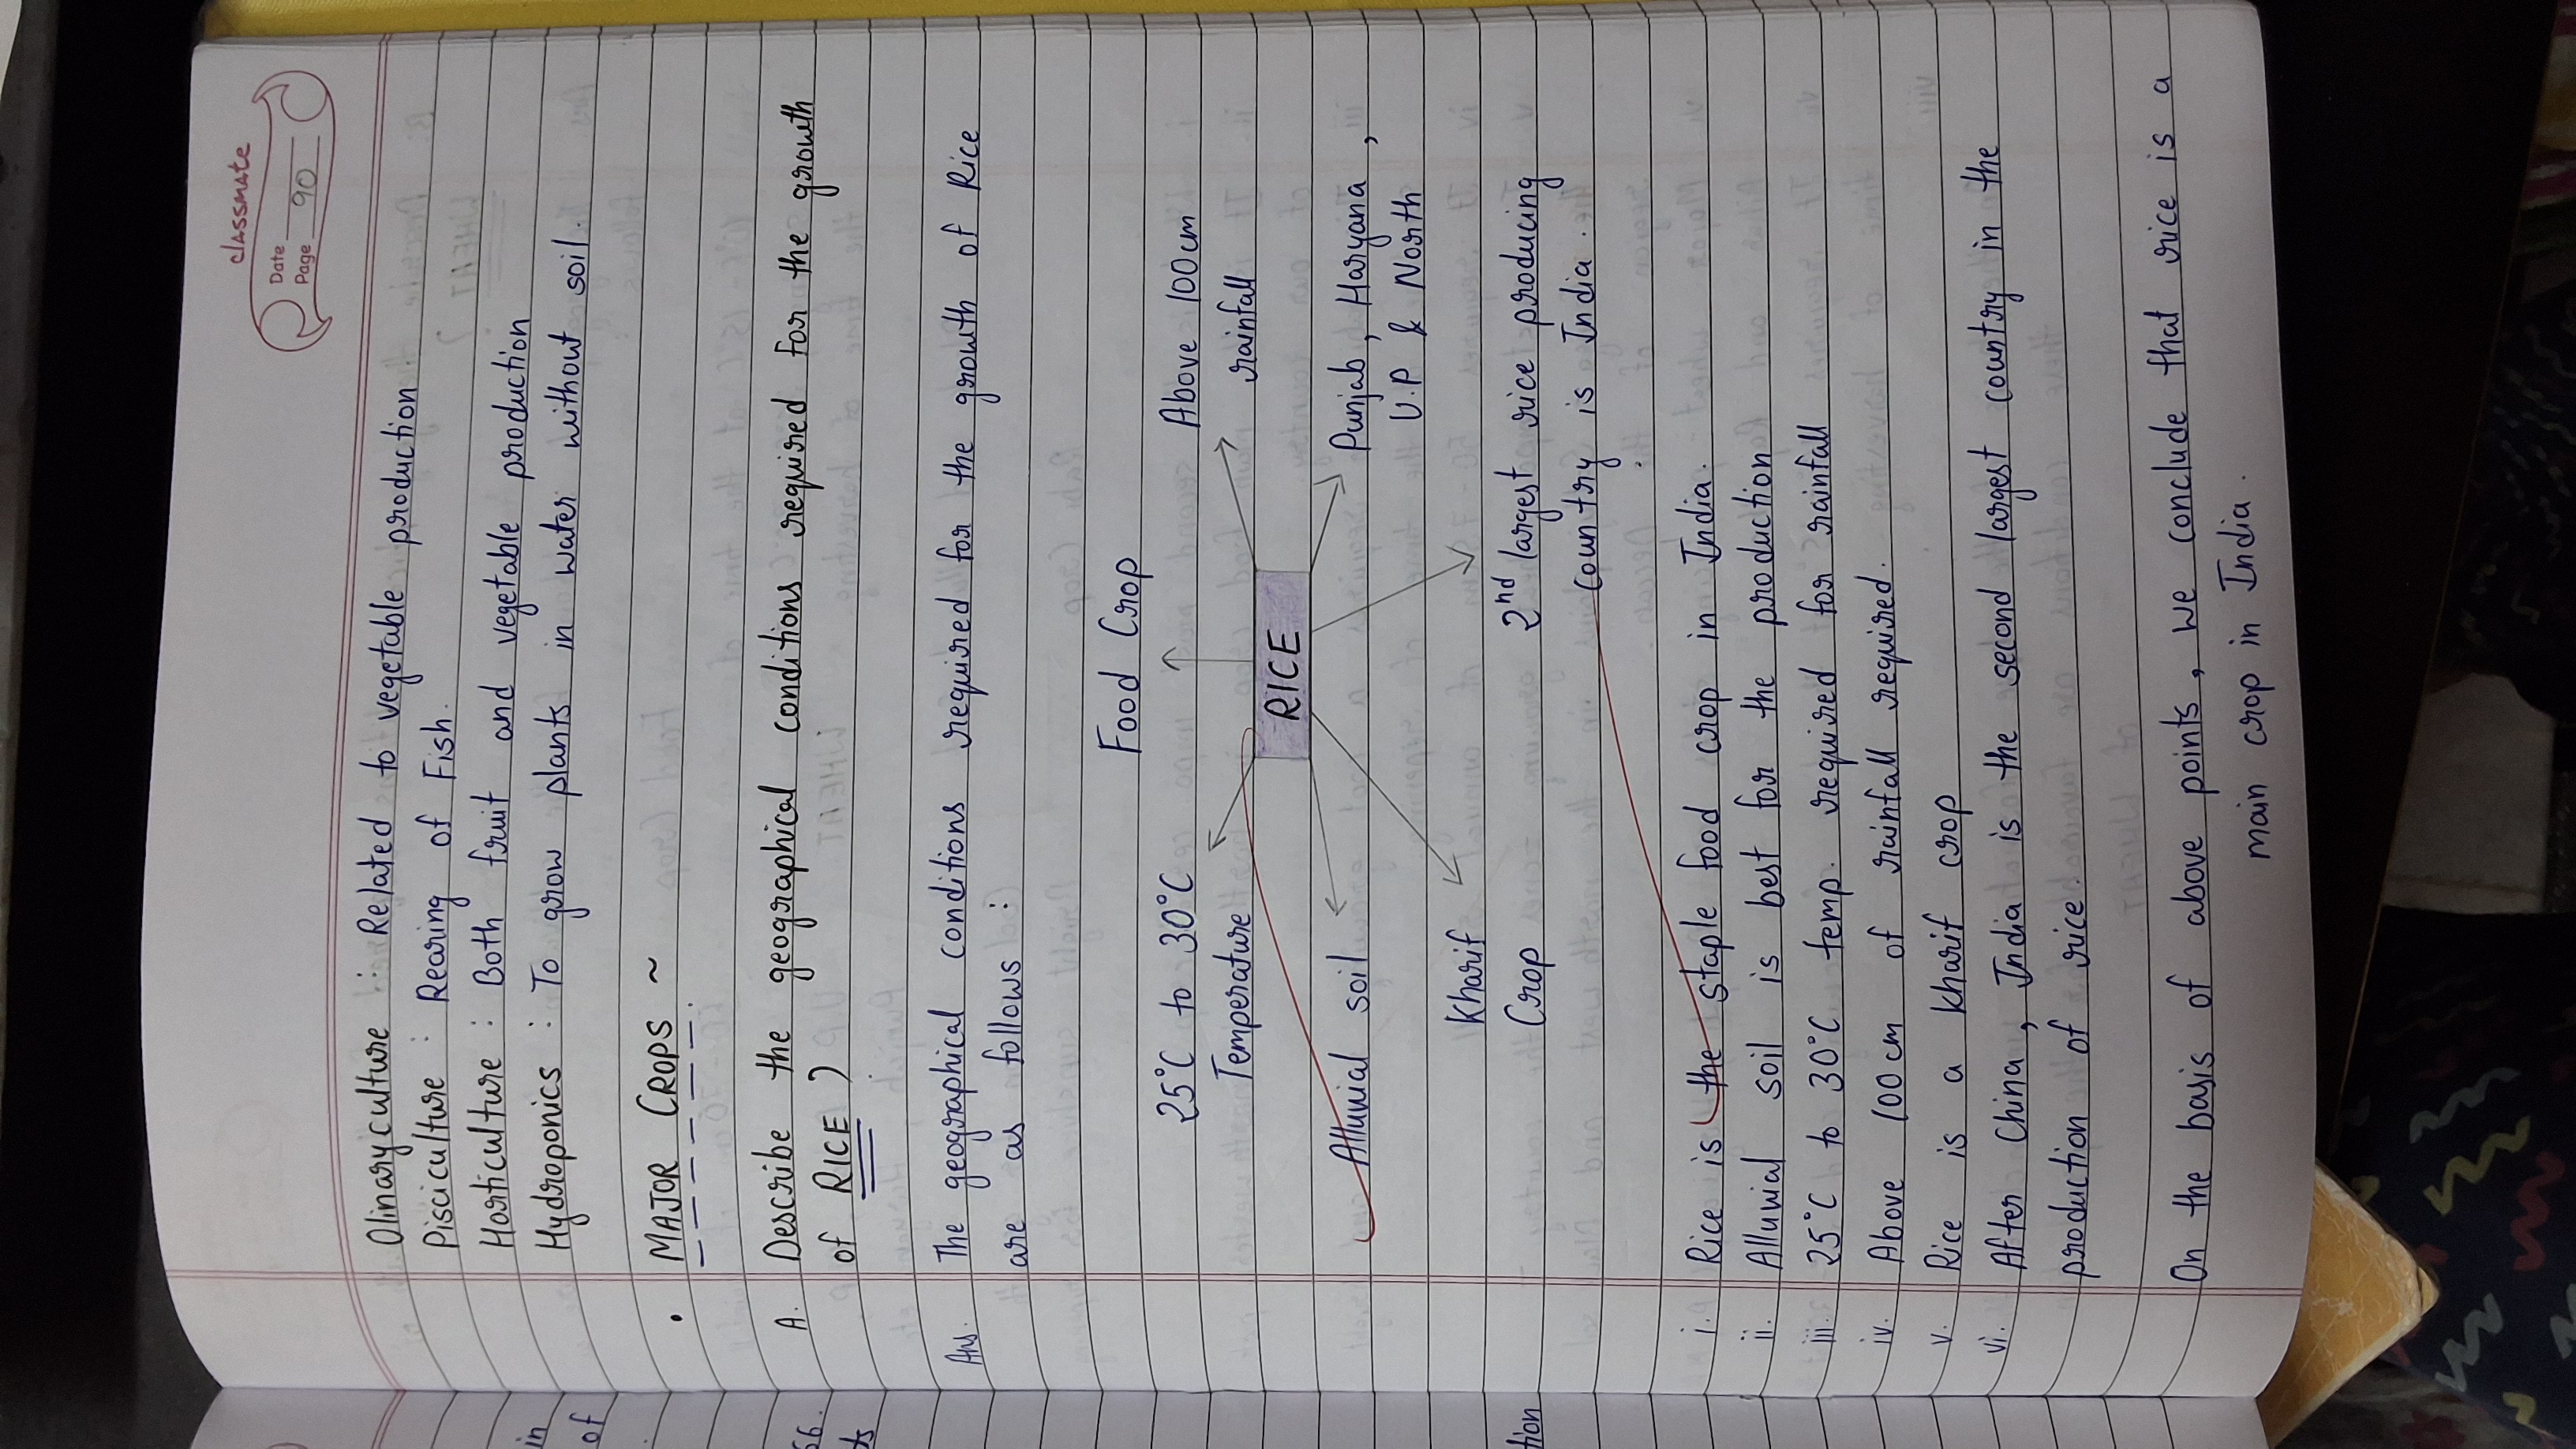 classmate
Date
Page 90
Olinaryculture : Related to vegetable production
Pisciculture : Rearing of Fish.
Horticulture : Both fruit and vegetable production
Hydroponics : To grow plants in water without soil.
• MAJOR CROPS ~
A. Describe the geographical conditions required for the growth
of RICE ?
Ans. The geographical conditions required for the growth of Rice
are as follows :
Food Crop
25°C to 30°C
Temperature
Above 100cm
rainfall
RICE
Alluvial soil
Punjab, Haryana,
U.P & North
Kharif
Crop
2nd largest rice producing
country is India.
i. Rice is the staple food crop in India.
ii. Alluvial soil is best for the production
iii. 25°C to 30°C temp. required for rainfall
iv. Above 100 cm of rainfall required.
v. Rice is a kharif crop
vi. After China, India is the second largest country in the
production of rice.
On the basis of above points, we conclude that rice is a
main crop in India.
in
of
66.
ts
tion